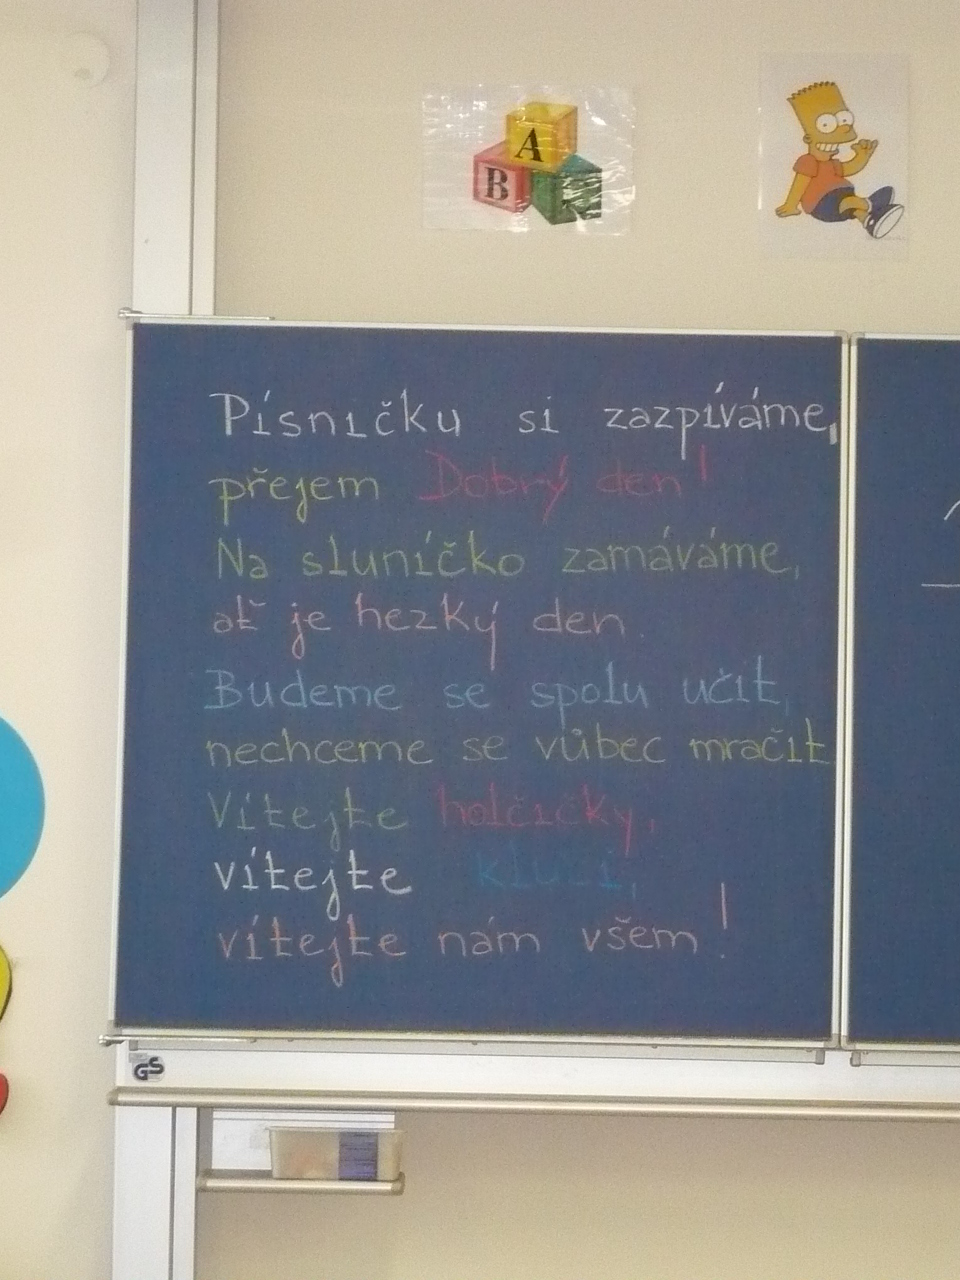 A
B
Písničku si zazpíváme,
přejem Dobrý den!
Na sluníčko zamáváme,
ať je hezký den.
Budeme se spolu učit,
nechceme se vůbec mračit
Vítejte holčičky,
vítejte kluci,
vítejte nám všem!
GS